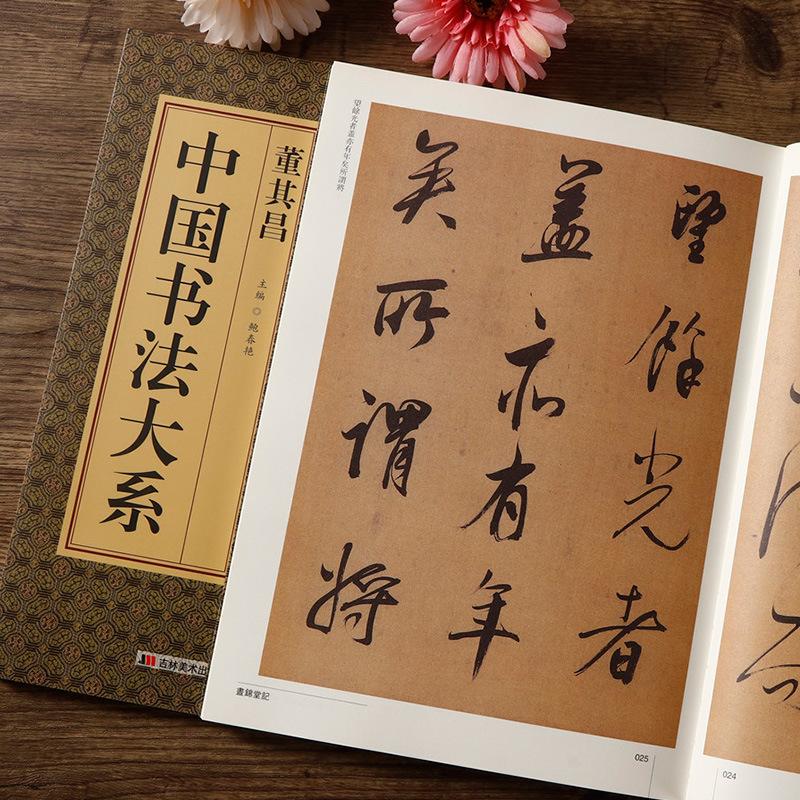 董其昌
中国书法大系
主编◎鲍春艳
吉林美术出
望餘光者蓋亦有年矣所謂將
望餘光者
蓋亦有年
矣所謂將
晝錦堂記
025
024